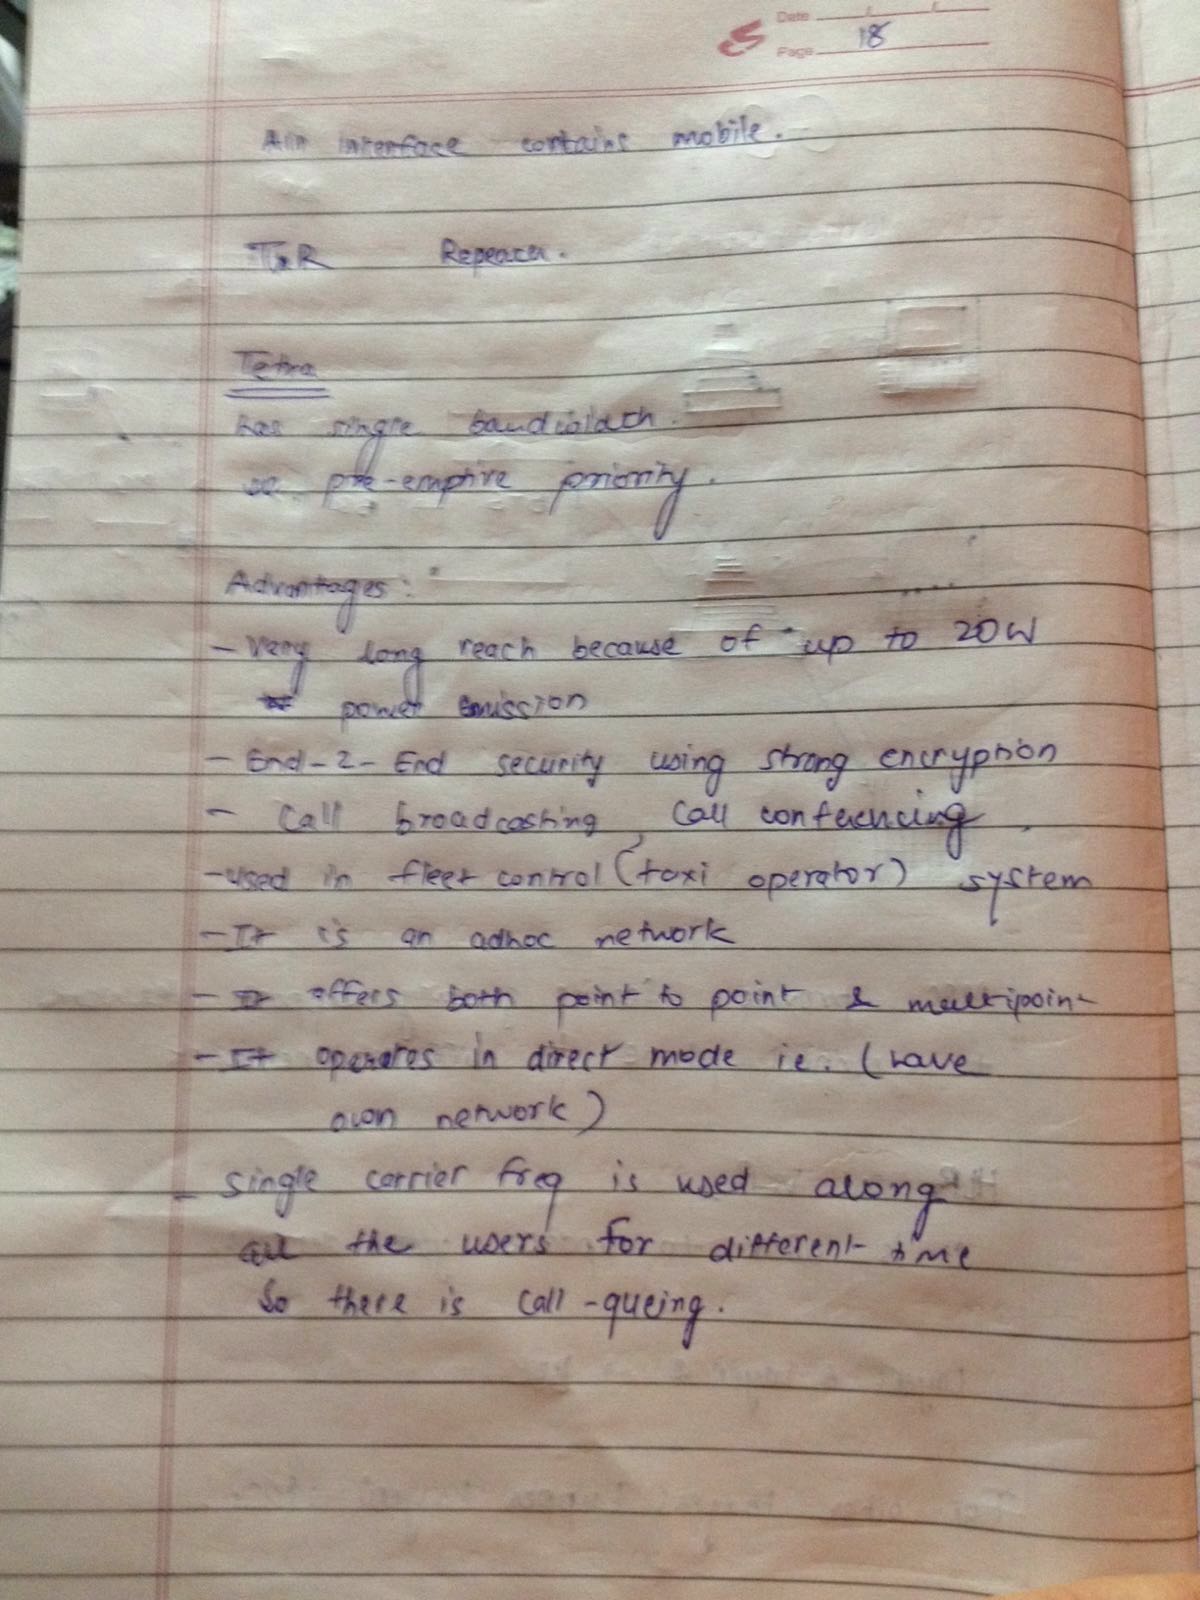 Date / /
Page 18
Air interface contains mobile.
Repeater.
Tetra
has single bandwidth.
so pre-emptive priority.
Advantages:
- Very long reach because of up to 20W
power emission
- End-2-End security using strong encryption
- Call broadcasting, Call conferencing,
- used in fleet control (taxi operator) system
- It is an adhoc network
- It offers both point to point & multipoint
- It operates in direct mode ie. (have
own network)
- single carrier freq is used along
all the users for different time
So there is call-queing.